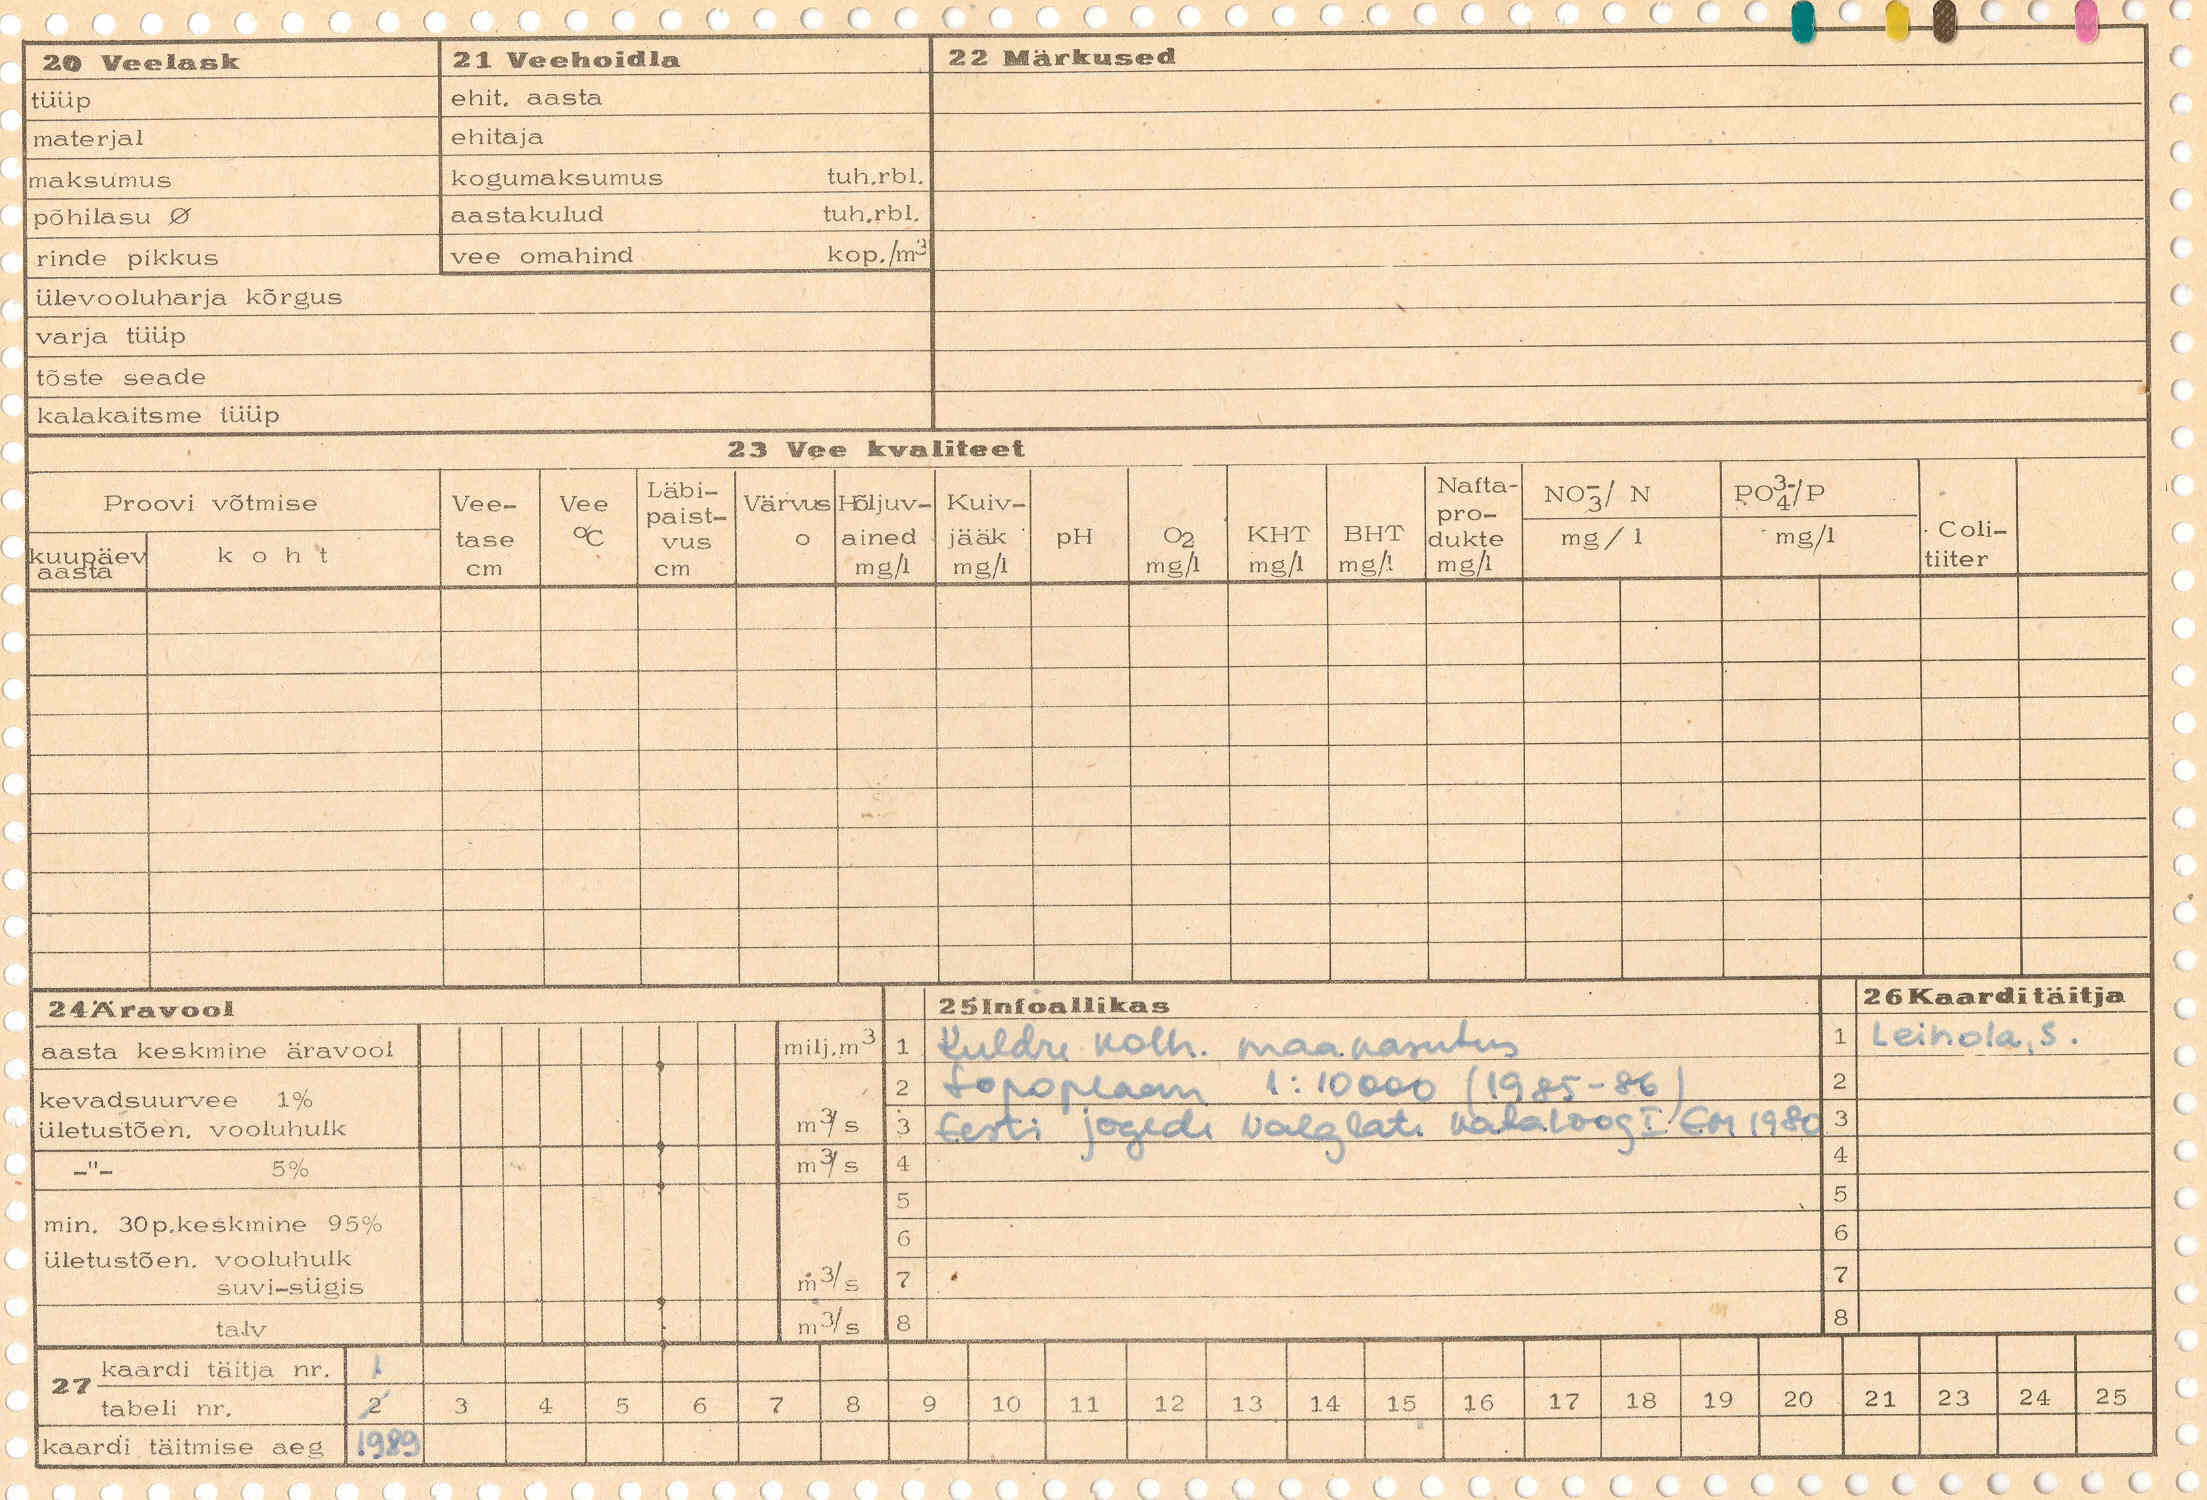 20 Veelask
tüüp
materjal
maksumus
põhilasu Ø
rinde pikkus
ülevooluharja kõrgus
varja tüüp
tõste seade
kalakaitsme tüüp
21 Veehoidla
ehit. aasta
ehitaja
kogumaksumus tuh.rbl.
aastakulud tuh.rbl.
vee omahind kop./m³
22 Märkused
23 Vee kvaliteet
Proovi võtmise
kuupäev aasta
koht
Vee-
tase
cm
Vee
°C
Läbi-
paist-
vus
cm
Värvus
o
Hõljuv-
ained
mg/l
Kuiv-
jääk
mg/l
pH
O₂
mg/l
KHT
mg/l
BHT
mg/l
Nafta-
pro-
dukte
mg/l
NO₃⁻/ N
mg/l
PO₄³⁻/P
mg/l
Coli-
tiiter
24 Äravool
aasta keskmine äravool milj.m³
kevadsuurvee 1%
ületustõen. vooluhulk m³/s
-"- 5% m³/s
min. 30p.keskmine 95%
ületustõen. vooluhulk
suvi-sügis m³/s
talv m³/s
25 Infoallikas
1 Kuldre kolh. maakasutus
2 topoplaan 1:10000 (1985-86)
3 Eesti jõgede valglate kataloog I EM 1980
4
5
6
7
8
26 Kaarditäitja
1 Leinola, S.
2
3
4
5
6
7
8
27
kaardi täitja nr. 1
tabeli nr. 2 3 4 5 6 7 8 9 10 11 12 13 14 15 16 17 18 19 20 21 23 24 25
kaardi täitmise aeg 1989